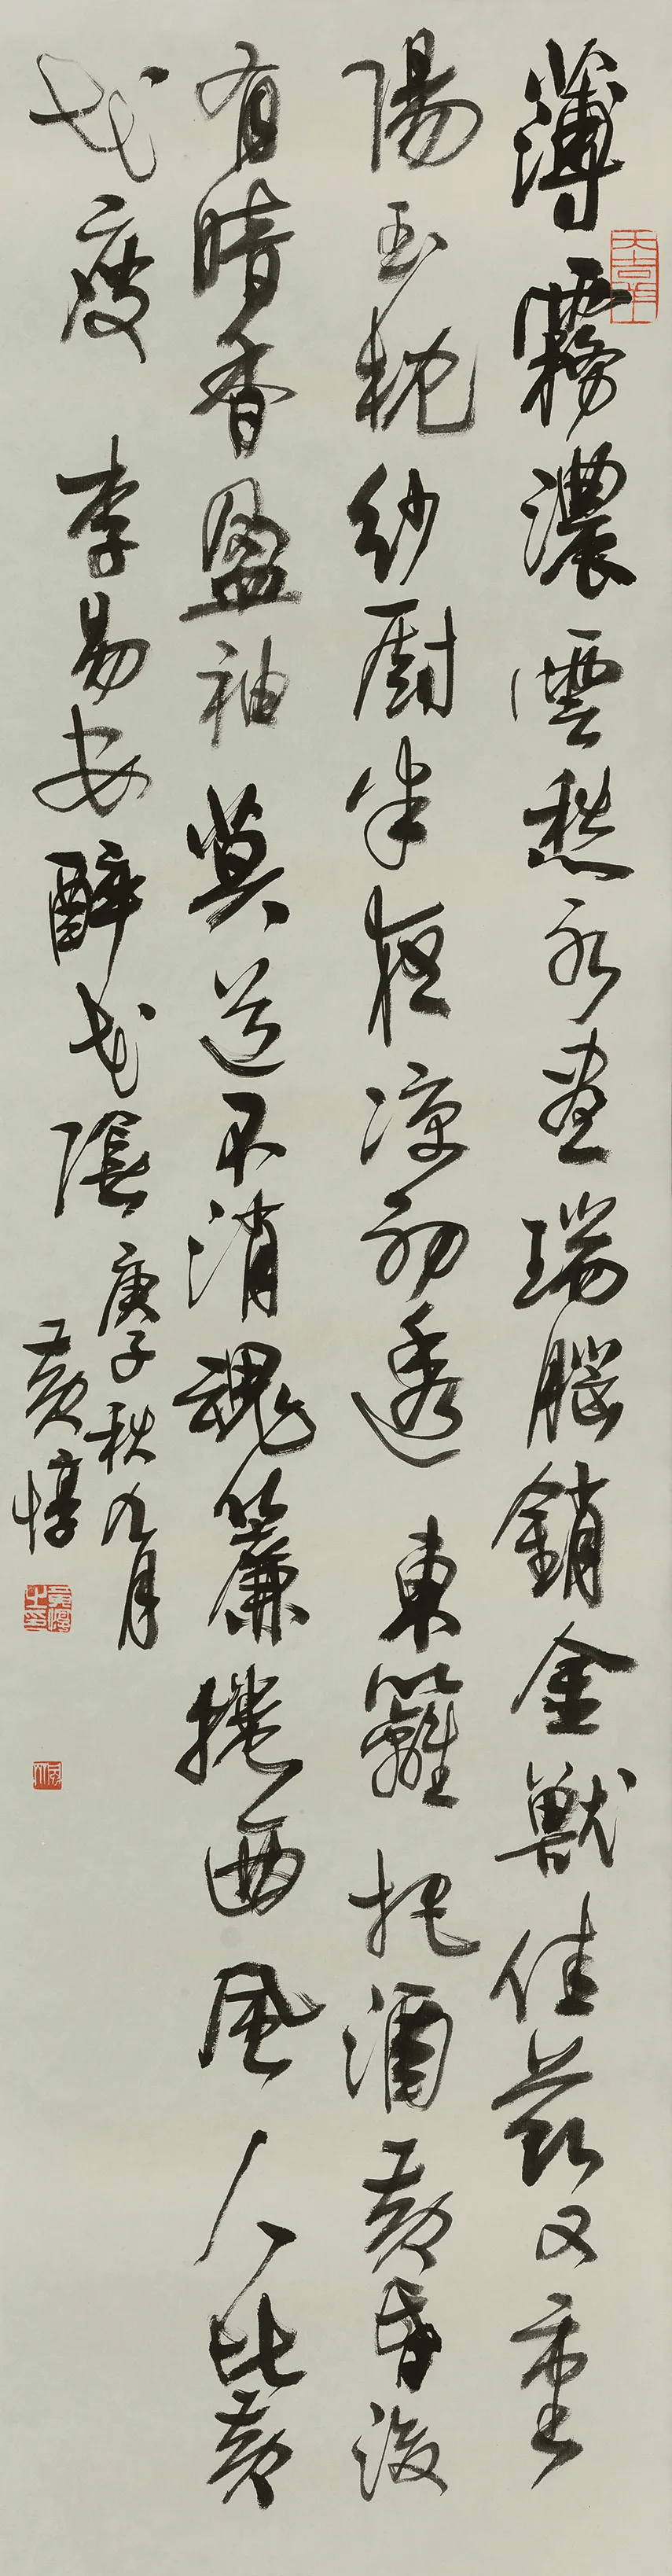 薄霧濃雲愁永晝瑞腦銷金獸佳節又重
陽玉枕紗厨半夜涼初透東籬把酒黃昏後
有暗香盈袖莫道不消魂簾捲西風人比黃
花瘦 李易安醉花陰
庚子秋九月
黃惇
黃惇之印